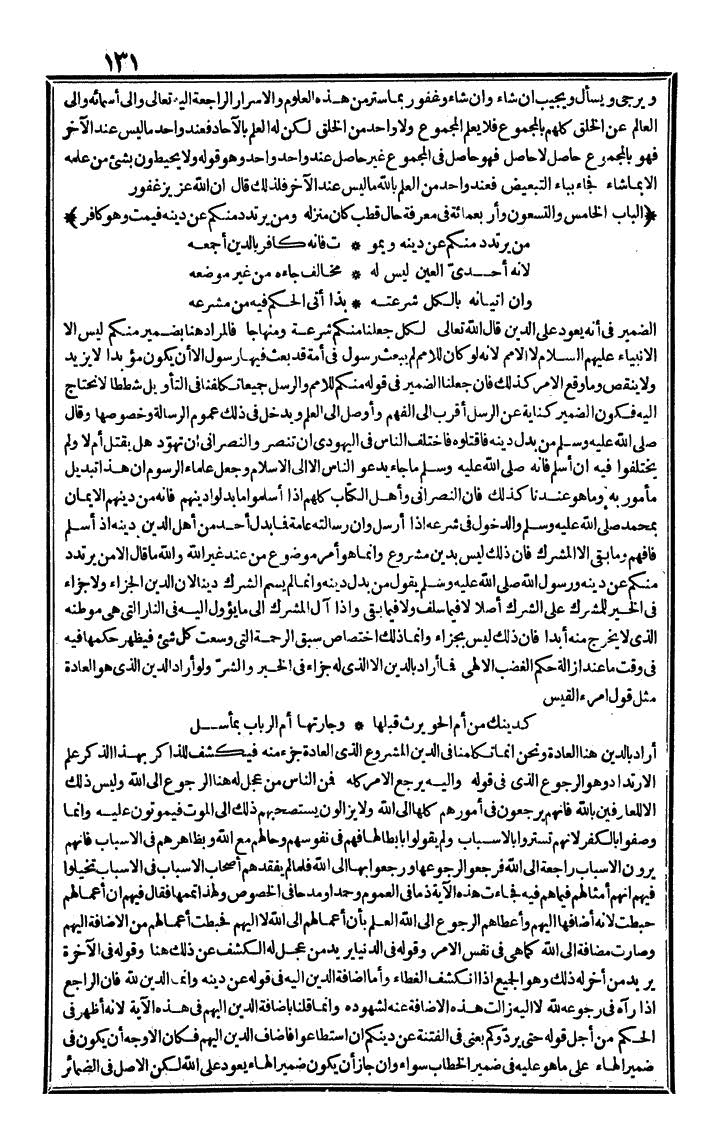 ١٣١
ويرجى ويسأل ويجيب ان شاء وان شاء وغفور بما ستر من هذه العلوم والاسرار الراجعة اليه تعالى والى أسمائه والى
العالم عن الخلق كلهم بالمجموع فلا يعلم المجموع ولا واحد من الخلق لكن له العلم بالآحاد فعند واحد ما ليس عند الآخر
فهو بالمجموع حاصل لا حاصل فهو حاصل فى المجموع غير حاصل عند واحد واحد وهو قوله ولا يحيطون بشئ من علمه
الا بما شاء فجاء بباء التبعيض فعند واحد من العلم بالله ما ليس عند الآخر فلذلك قال ان الله عزيز غفور
﴿الباب الخامس والتسعون وأربعمائة فى معرفة حال قطب كان منزله ومن يرتدد منكم عن دينه فيمت وهو كافر﴾
من يرتدد منكم عن دينه ويمو * ت فانه كافر بالدين أجمعه
لانه أحدىّ العين ليس له * مخالف جاءه من غير موضعه
وان اتيانه بالكل شرعته * بذا أتى الحكم فيه من مشرعه
الضمير فى أنه يعود على الدين قال الله تعالى لكل جعلنا منكم شرعة ومنهاجا فالمراد هنا بضمير منكم ليس الا
الانبياء عليهم السلام لا الامم لانه لو كان للامم لم يبعث رسول فى أمة قد بعث فيها رسول الا أن يكون مؤيدا لا يزيد
ولا ينقص وما وقع الامر كذلك فان جعلنا الضمير فى قوله منكم للامم والرسل جميعا تكلفنا فى التأويل شططا لا نحتاج
اليه فكون الضمير كناية عن الرسل أقرب الى الفهم وأوصل الى العلم ويدخل فى ذلك عموم الرسالة وخصوصها وقال
صلى الله عليه وسلم من بدل دينه فاقتلوه فاختلف الناس فى اليهودى ان تنصر والنصرانى ان تهوّد هل يقتل أم لا ولم
يختلفوا فيه ان أسلم فانه صلى الله عليه وسلم ما جاء يدعو الناس الا الى الاسلام وجعل علماء الرسوم ان هذا تبديل
مأمور به وما هو عندنا كذلك فان النصرانى وأهل الكتاب كلهم اذا أسلموا ما بدلوا دينهم فانه من دينهم الايمان
بمحمد صلى الله عليه وسلم والدخول فى شرعه اذا أرسل وان رسالته عامة فما بدل أحد من أهل الدين دينه اذ أسلم
فافهم وما بقى الا المشرك فان ذلك ليس بدين مشروع وانما هو أمر موضوع من عند غير الله والله ما قال الا من يرتدد
منكم عن دينه ورسول الله صلى الله عليه وسلم يقول من بدل دينه وانما لم يسم الشرك دينا لان الدين الجزاء ولا جزاء
فى الخير للمشرك على الشرك أصلا لا فيما سلف ولا فيما بقى واذا آل المشرك الى ما يؤول اليه فى النار التى هى موطنه
الذى لا يخرج منه أبدا فان ذلك ليس بجزاء وانما ذلك اختصاص سبق الرحمة التى وسعت كل شئ فيظهر حكمها فيه
فى وقت ما عند ازالة حكم الغضب الالهى فما أراد بالدين الا الذى له جزاء فى الخير والشرّ ولو أراد الدين الذى هو العادة
مثل قول امرء القيس
كدينك من أم الحويرث قبلها * وجارتها أم الرباب بمأسل
أراد بالدين هنا العادة ونحن انما تكلمنا فى الدين المشروع الذى العادة جزء منه فيكشف للذاكر بهذا الذكر علم
الارتداد وهو الرجوع الذى فى قوله واليه يرجع الامر كله فمن الناس من عجل له هنا الرجوع الى الله وليس ذلك
الا للعارفين بالله فانهم يرجعون فى أمورهم كلها الى الله ولا يزالون يستصحبهم ذلك الى الموت فيموتون عليه وانما
وصفوا بالكفر لانهم تستروا بالاسباب ولم يقولوا بابطالها فهم فى نفوسهم وحالهم مع الله وبظاهرهم فى الاسباب فانهم
يرون الاسباب راجعة الى الله فرجعوا لرجوعها ورجعوا بها الى الله فلما لم يفقدهم أصحاب الاسباب فى الاسباب تخيلوا
فيهم انهم أمثالهم فيما هم فيه فجاءت هذه الآية ذما فى العموم وحمدا ومدحا فى الخصوص ولهذا تممها فقال فيهم ان أعمالهم
حبطت لانه أضافها اليهم وأعطاهم الرجوع الى الله العلم بأن أعمالهم الى الله لا اليهم فحبطت أعمالهم من الاضافة اليهم
وصارت مضافة الى الله كما هى فى نفس الامر وقوله فى الدنيا يريد من عجل له الكشف عن ذلك هنا وقوله فى الآخرة
يريد من أخر له ذلك وهو الجميع اذا انكشف الغطاء وأما اضافة الدين اليه فى قوله عن دينه وانما الدين لله فان الراجع
اذا رآه فى رجوعه لله لا اليه زالت هذه الاضافة عنه لشهوده وانما قلنا باضافة الدين اليهم فى هذه الآية لانه أظهر فى
الحكم من أجل قوله حتى يردّوكم يعنى فى الفتنة عن دينكم ان استطاعوا فاضاف الدين اليهم فكان الاوجه أن يكون فى
ضمير الهاء على ما هو عليه فى ضمير الخطاب سواء وان جاز أن يكون ضمير الهاء يعود على الله لكن الاصل فى الضمائر